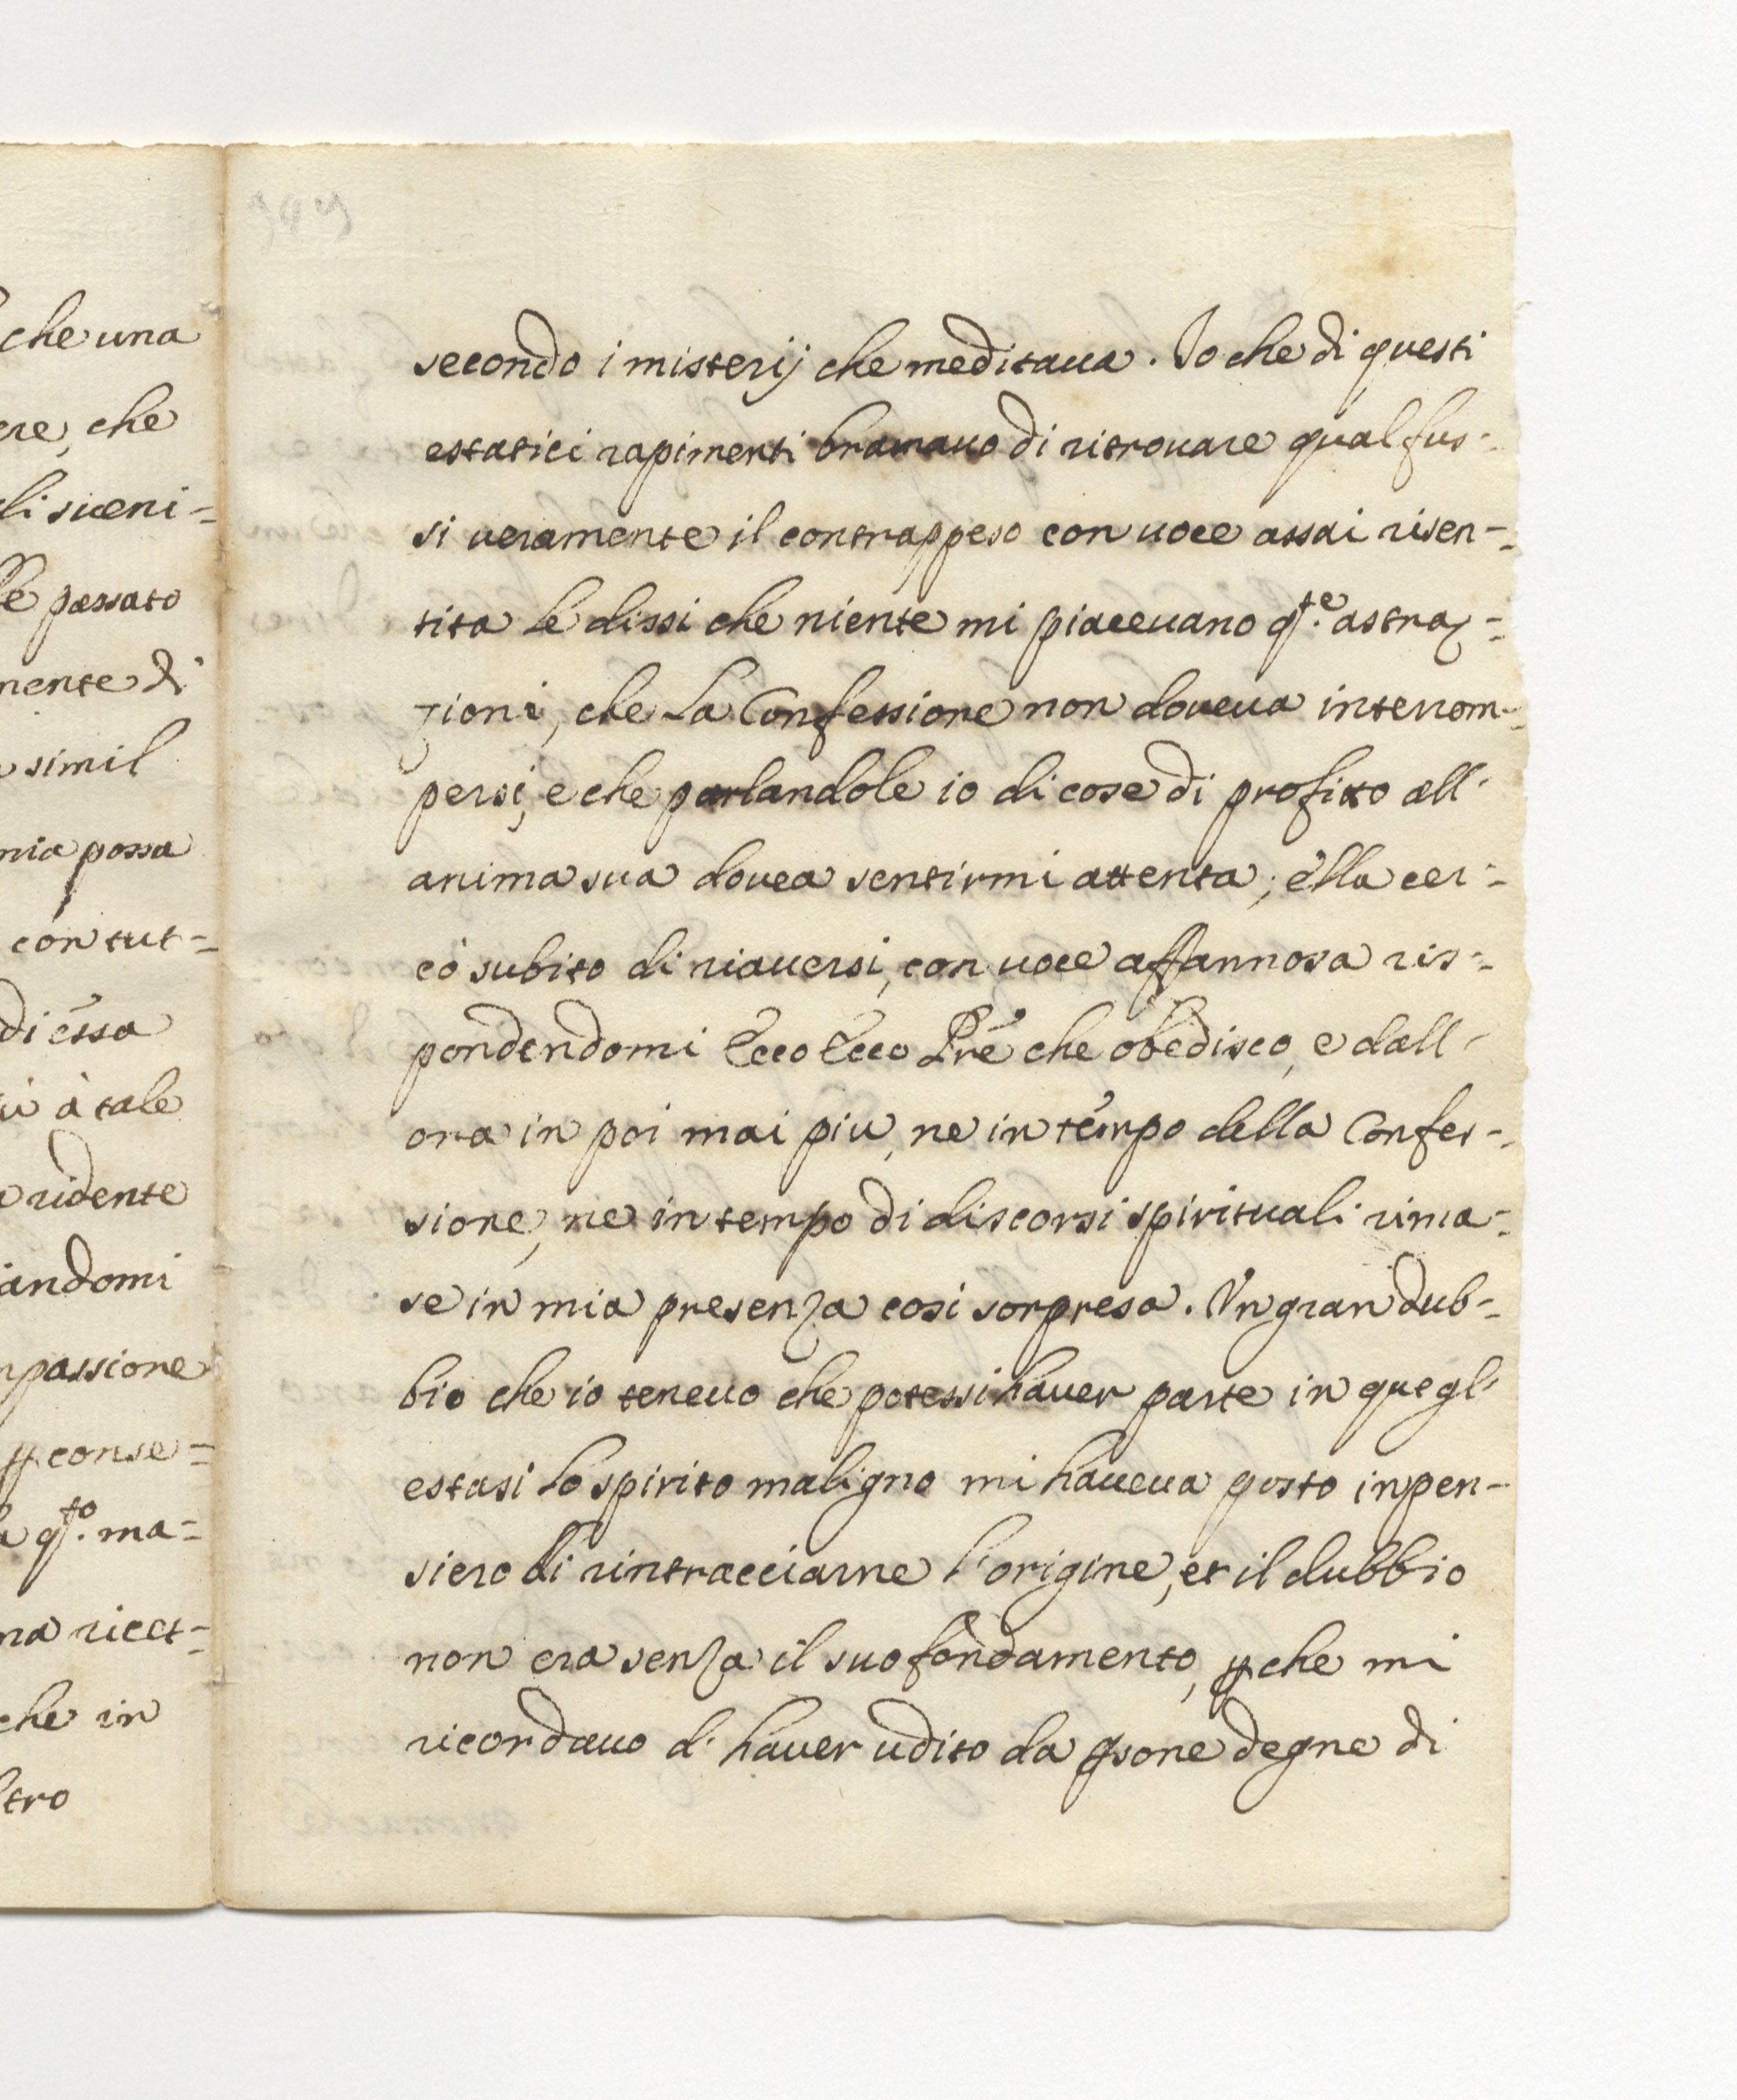 che una
ere, che
di sueni-
passato
mente di
simil
mia possa
con tut-
di éssa
à tale
ridente
iandomi
passione
ꝑ conse-
q.to ma-
na ricet-
che in
ltro
secondo i misterij che meditaua. Io che di questi
estatici rapimenti bramauo di ritrouare qual fus-
si ueramente il contrappeso con uoce assai risen-
tita le dissi che niente mi piaceuano q.te astraz-
zioni, che la Confessione non doueua interrom-
persi, e che parlandole io di cose di profitto all'
anima sua douea sentirmi attenta; élla cer-
có subito di riauersi, con uoce affannosa ris-
pondendomi Ecco Ecco Pre che obedisco, e dall'
ora in poi mai piu, ne in témpo della Confes-
sione, ne in tempo di discorsi spirituali rima-
se in mia presenza cosi sorpresa. Vn gran dub-
bio che io teneuo che potessi hauer parte in quegl'
estasi lo spirito maligno mi haueua posto in pen-
siero di rintracciarne l'origine, et il dubbio
non era senza il suo fondamento, ꝑche mi
ricordauo d' hauer udito da ꝑsone degne di